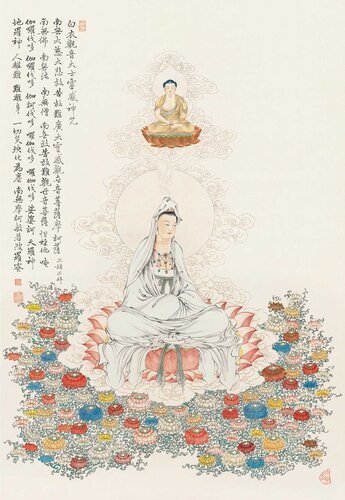 白衣觀音大士靈感神咒
南無大慈大悲救苦救難廣大靈感觀世音菩薩摩訶薩 三稱三拜
南無佛 南無法 南無僧 南無救苦救難觀世音菩薩 怛垤哆 唵
伽囉伐哆 伽囉伐哆 伽訶伐哆 囉伽伐哆 囉伽伐哆 娑婆訶 天羅神
地羅神 人離難 難離身 一切災殃化為塵 南無摩訶般若波羅蜜